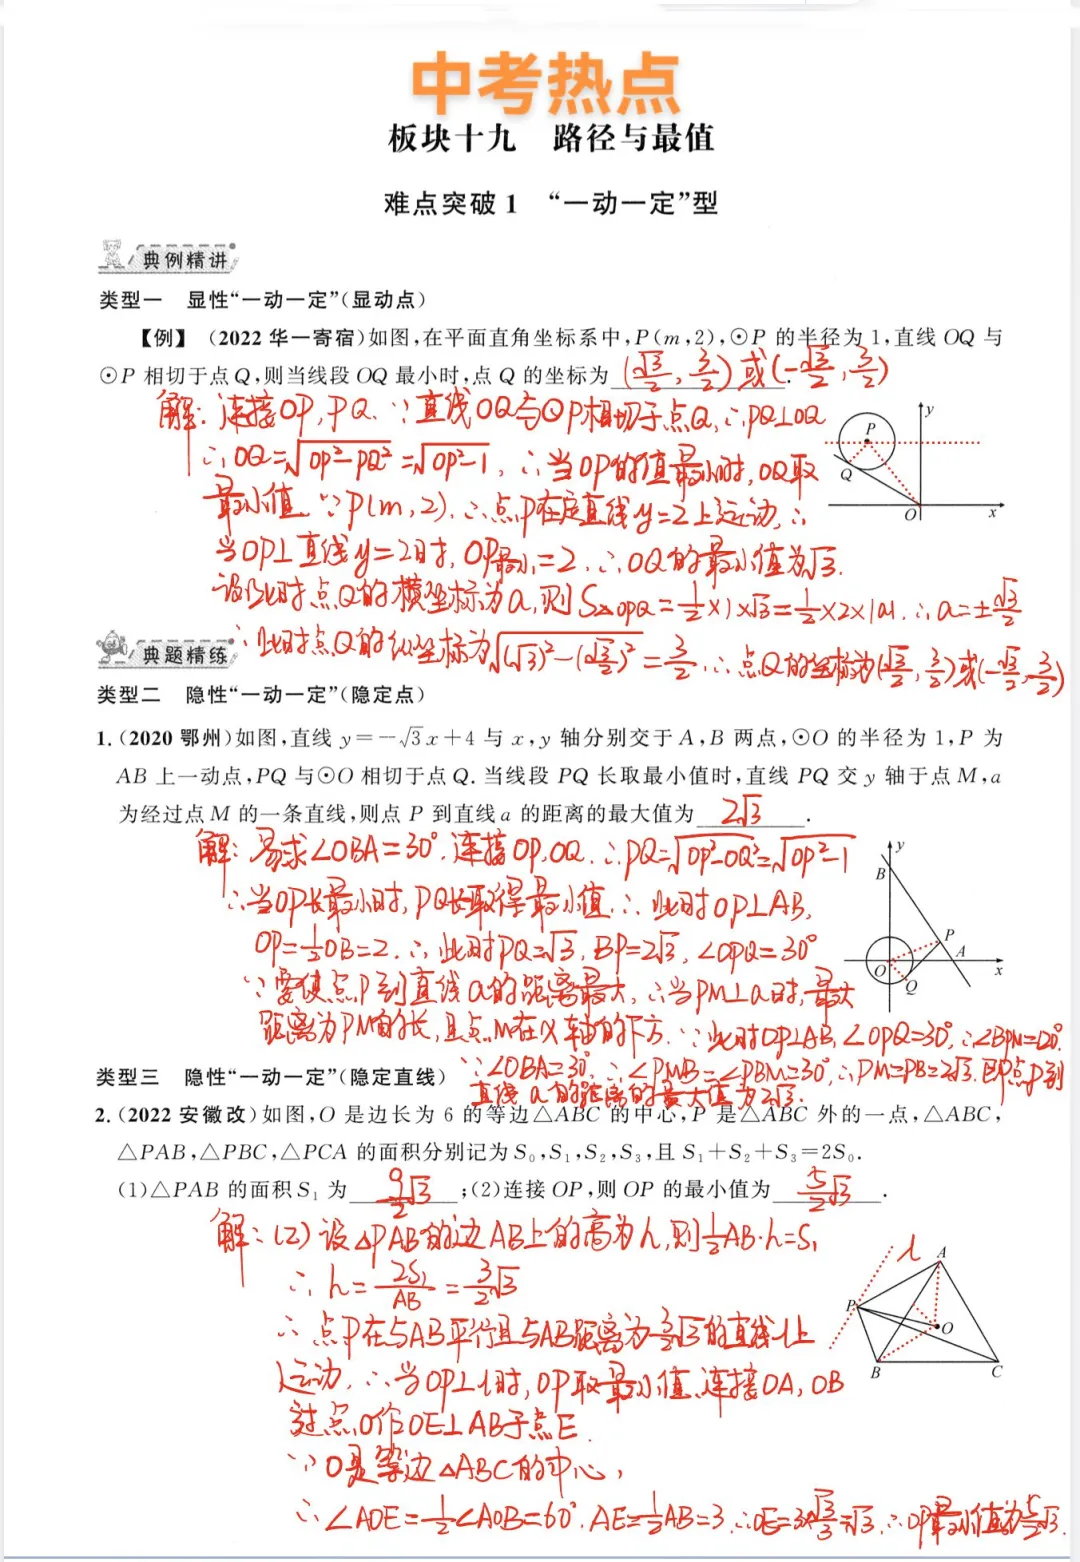 中考热点
板块十九 路径与最值
难点突破1 “一动一定”型
典例精讲
类型一 显性“一动一定”(显动点)
【例】 (2022 华一寄宿)如图,在平面直角坐标系中,P(m,2),⊙P 的半径为1,直线 OQ 与
⊙P 相切于点 Q,则当线段 OQ 最小时,点 Q 的坐标为 (√3/2, 3/2)或(-√3/2, 3/2).
解:连接OP,PQ.∵直线OQ与⊙P相切于点Q,∴PQ⊥OQ
∴OQ=√OP²-PQ²=√OP²-1,∴当OP的值最小时,OQ取
最小值.∵P(m,2),∴点P在定直线y=2上运动,∴
当OP⊥直线y=2时,OP最小=2.∴OQ的最小值为√3.
设此时点Q的横坐标为a,则S△OPQ=1/2×1×√3=1/2×2×|a|.∴a=±√3/2
∴此时点Q的纵坐标为√(√3)²-(√3/2)²=3/2,∴点Q的坐标为(√3/2, 3/2)或(-√3/2, 3/2)
P
Q
O
x
y
典题精练
类型二 隐性“一动一定”(隐定点)
1.(2020 鄂州)如图,直线 y=-√3x+4 与 x,y 轴分别交于 A,B 两点,⊙O 的半径为1,P 为
AB 上一动点,PQ 与⊙O 相切于点 Q.当线段 PQ 长取最小值时,直线 PQ 交 y 轴于点 M,a
为经过点 M 的一条直线,则点 P 到直线 a 的距离的最大值为 2√3 .
解:易求∠OBA=30°.连接OP,OQ.∴PQ=√OP²-OQ²=√OP²-1
∴当OP长最小时,PQ长取得最小值.∴此时OP⊥AB,
OP=1/2OB=2.∴此时PQ=√3,BP=2√3,∠OPQ=30°
∵要使点P到直线a的距离最大,∴当PM⊥a时,最大
距离为PM的长,且点M在x轴的下方.∵此时OP⊥AB,∠OPQ=30°,∴∠BPM=120°.
∵∠OBA=30°,∴∠PMB=∠PBM=30°,∴PM=PB=2√3.即点P到
直线a的距离的最大值为2√3.
y
B
P
A
O
Q
x
类型三 隐性“一动一定”(隐定直线)
2.(2022 安徽改)如图,O 是边长为 6 的等边△ABC 的中心,P 是△ABC 外的一点,△ABC,
△PAB,△PBC,△PCA 的面积分别记为 S₀,S₁,S₂,S₃,且 S₁+S₂+S₃=2S₀.
(1)△PAB 的面积 S₁ 为 9/2√3 ;(2)连接 OP,则 OP 的最小值为 5/2√3 .
解:(2)设△PAB的边AB上的高为h,则1/2AB·h=S₁
∴h=2S₁/AB=3/2√3
∴点P在与AB平行且与AB距离为3/2√3的直线l上
运动.∴当OP⊥l时,OP取最小值.连接OA,OB
过点O作OE⊥AB于点E.
∵O是等边△ABC的中心,
∴∠AOE=1/2∠AOB=60°.AE=1/2AB=3.∴OE=3×√3/3=√3.∴OP最小值为5/2√3.
l
A
P
O
B
C